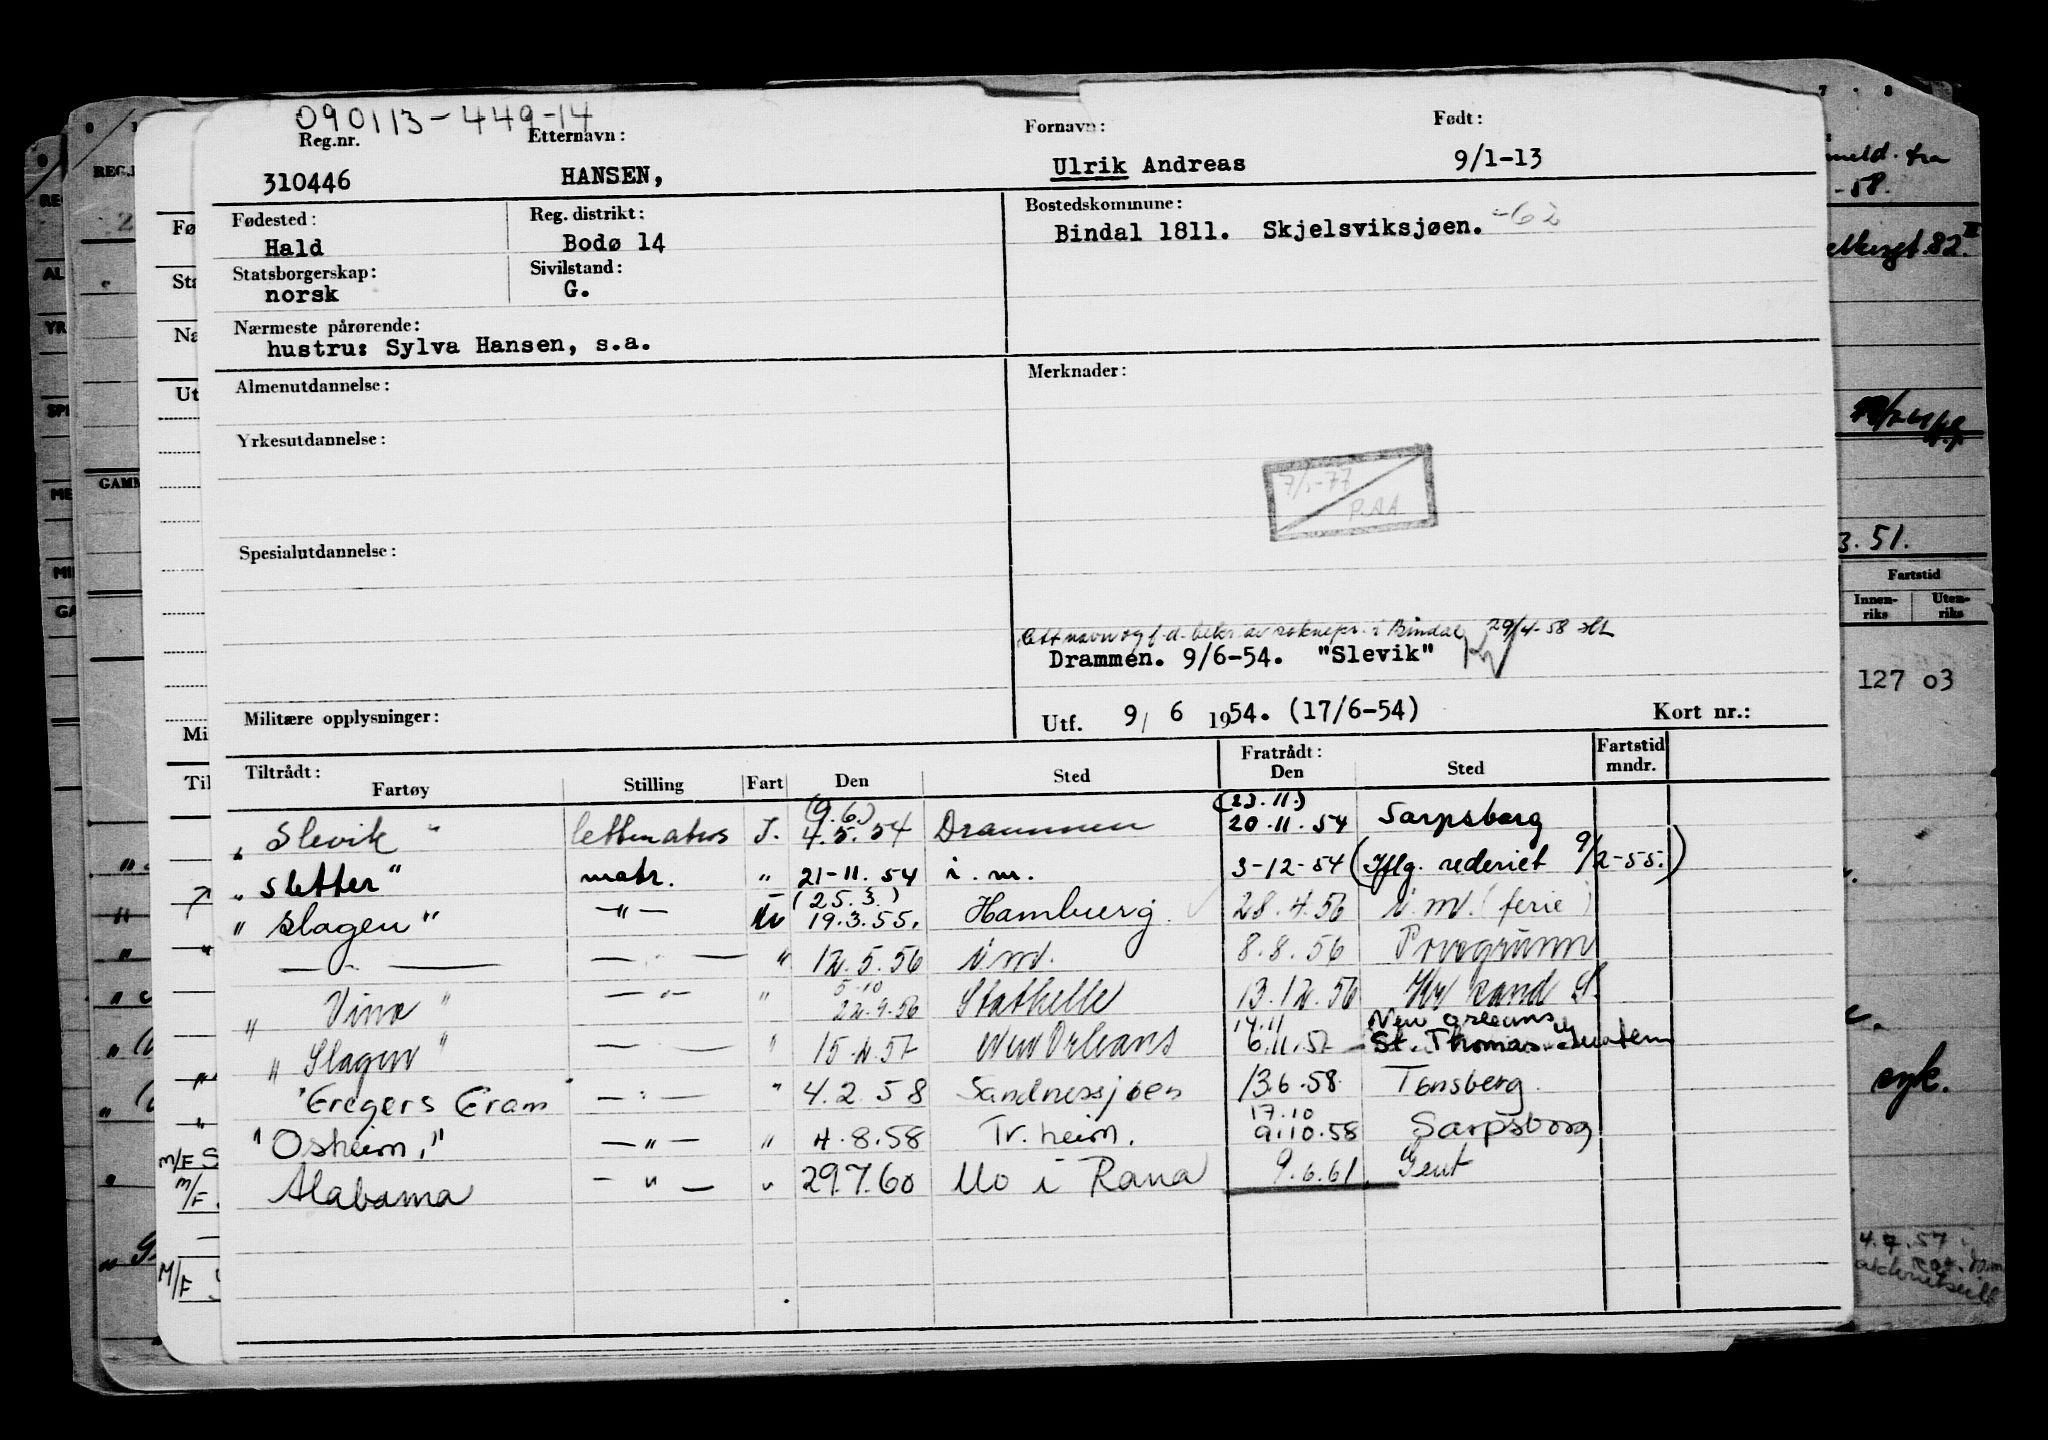 090113-449-14
Reg.nr. Etternavn: Fornavn: Født:
310446 HANSEN, Ulrik Andreas 9/1-13
Fødested: Reg. distrikt: Bostedskommune:
Hald Bodø 14 Bindal 1811. Skjelsviksjøen. -62
Statsborgerskap: Sivilstand:
norsk G.
Nærmeste pårørende:
hustru: Sylva Hansen, s.a.
Almenutdannelse: Merknader:
Yrkesutdannelse:
7/1-77
P.AA
Spesialutdannelse:
navn og f.d. bekr av i Bindal 29/4-58
Drammen. 9/6-54. "Slevik"
Militære opplysninger: Utf. 9/ 6 1954. (17/6-54) Kort nr.:
Tiltrådt: Fratrådt: Fartstid
Fartøy Stilling Fart Den Sted Den Sted mndr.
(9.6.) (23.11.)
"Slevik" lettmatros I. 4.5.54 Drammen 20.11.54 Sarpsborg
"Sletter" matr. " 21-11.54 i.m. 3-12-54 (Iflg. rederiet 9/2-55.)
(25.3.)
"Slagen" -"- U 19.3.55. Hamburg. 28.4.56 i.m. (ferie)
— " — — " — " 12.5.56 i.m. 8.8.56 Porsgrunn
5.10
" Vino " — " — " 22.9.56 Stathelle 13.12.56 Kr sand S.
14.11 New Orleans
" Slagen " — " — " 15.2.57 New Orleans 6.11.57 St. Thomas
"Gregers Gram — " — " 4.2.58 Sandnessjøen 13.6.58. Tønsberg.
17.10
"Osheim," — " — " 4.8.58 Tr.heim. 9.10.58 Sarpsborg
Alabama — " — " 29.7.60 Mo i Rana 9.6.61. Gent
REG.
GAMM
meld. fra
-58.
82.
3.51.
Fartstid
Innen-riks Uten-riks
127 03
syk.
4.7.57
M/F S
M/F
M/F